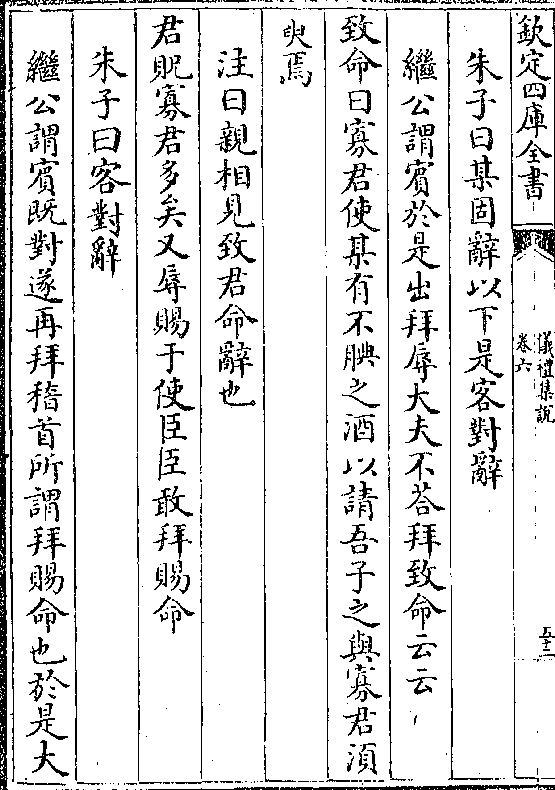 欽定四庫全書
儀禮集説
卷六
五十二
朱子曰某固辭以下是客對辭
繼公謂賓於是出拜辱大夫不荅拜致命云云
致命曰寡君使某有不腆之酒以請吾子之與寡君湏
臾焉
注曰親相見致君命辭也
君貺寡君多矣又辱賜于使臣臣敢拜賜命
朱子曰客對辭
繼公謂賓既對遂再拜稽首所謂拜賜命也於是大